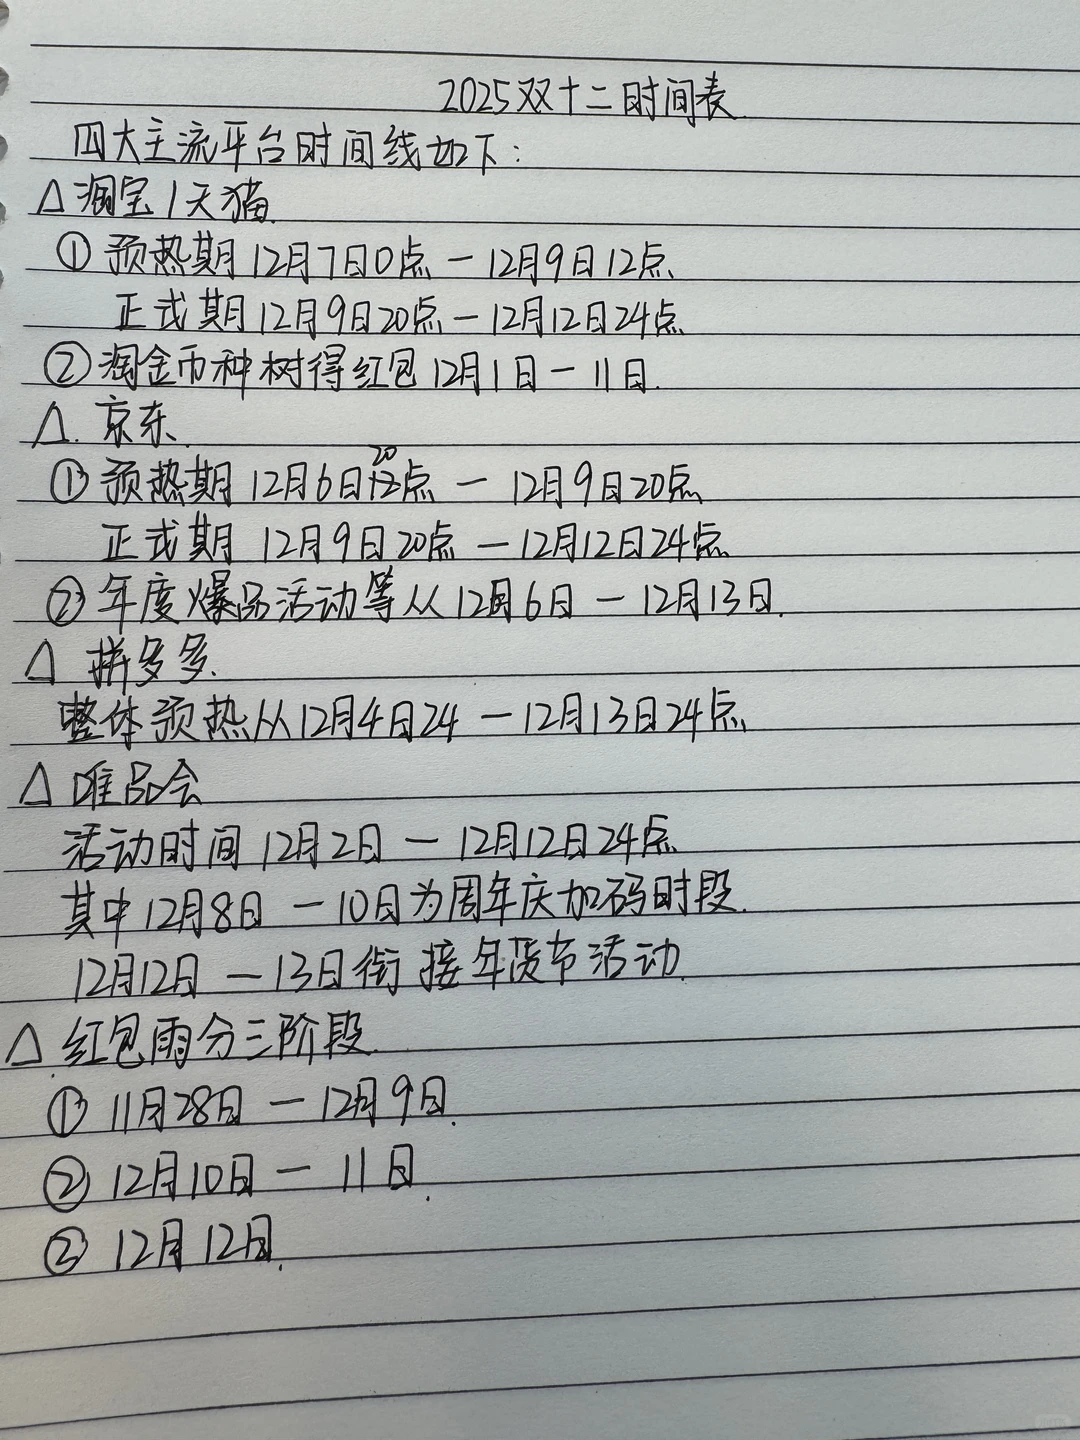 2025双十二时间表
四大主流平台时间线如下：
△淘宝/天猫
① 预热期12月7日0点—12月9日12点
正式期12月9日20点—12月12日24点
②淘金币种树得红包12月1日—11日.
△. 京东
① 预热期12月6日20点—12月9日20点
正式期 12月9日20点—12月12日24点
② 年度爆品活动等从12月6日—12月13日.
△ 拼多多.
整体预热从12月4日24—12月13日24点
△ 唯品会
活动时间12月2日—12月12日24点
其中12月8日—10日为周年庆加码时段.
12月12日—13日衔接年货节活动.
△ 红包雨分三阶段.
① 11月28日—12月9日.
② 12月10日—11日.
② 12月12日.